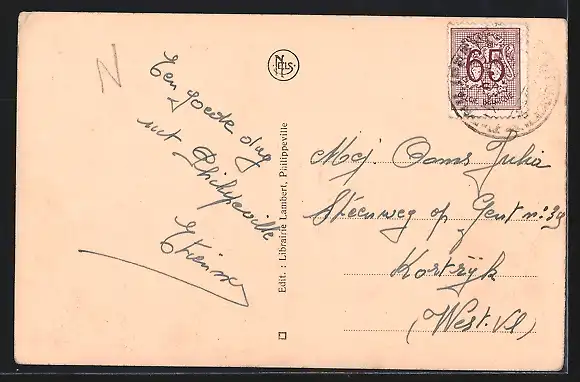 N
Een goede dag
uit Philippeville
Etienne
NELS
Edit. : Librairie Lambert, Philippeville
65c
BELGIQUE
Mej. Ooms Julia
Steenweg op Gent n: 39
Kortrijk
(West. Vl)